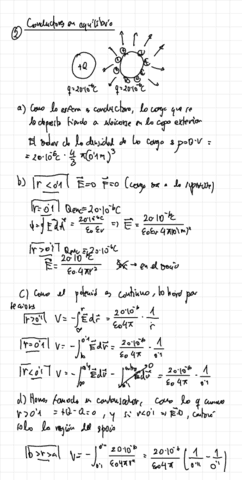 ③ Conductores en equilibrio
+Q
q=20·10⁻⁶C q=20·10⁻⁶C
a) Como la esfera es conductora, la carga que se
la deposita tiende a situarse en la capa exterior
El valor de la densidad de la carga es ρ=Q·V=
= 20·10⁻⁶C · 4/3 π(0'1m)³
b) |r<0'1| E=0 F=0 (carga en la superficie)
|r=0'1| Qenc=20·10⁻⁶C
ϕ=∮E dA = 20·10⁻⁶C/ε₀εr ⇒ E = 20·10⁻⁶C/ε₀εr4π(0'1m)²
|r>0'1| Qenc=20·10⁻⁶C
E = 20·10⁻⁶C/ε₀4πr² → en el vacío
c) Como el potencial es continuo, lo haré por
|r>0'1| V=-∫E dr = 20·10⁻⁶/ε₀4π · 1/r
|r=0'1| V=-∫E dr = 20·10⁻⁶/ε₀4π · 1/0'1
|r<0'1| V=-∫E dr - ∫E dr = 20·10⁻⁶/ε₀4π · 1/0'1
d) Hemos formado un condensador, como lo q
r>0'1 = +Q-Q=0, y si r<0'1 E=0,
solo la región del
|b>r>a| V=-∫20·10⁻⁶/ε₀4πr² = 20·10⁻⁶/ε₀4π (1/0'11 - 1/0'1)